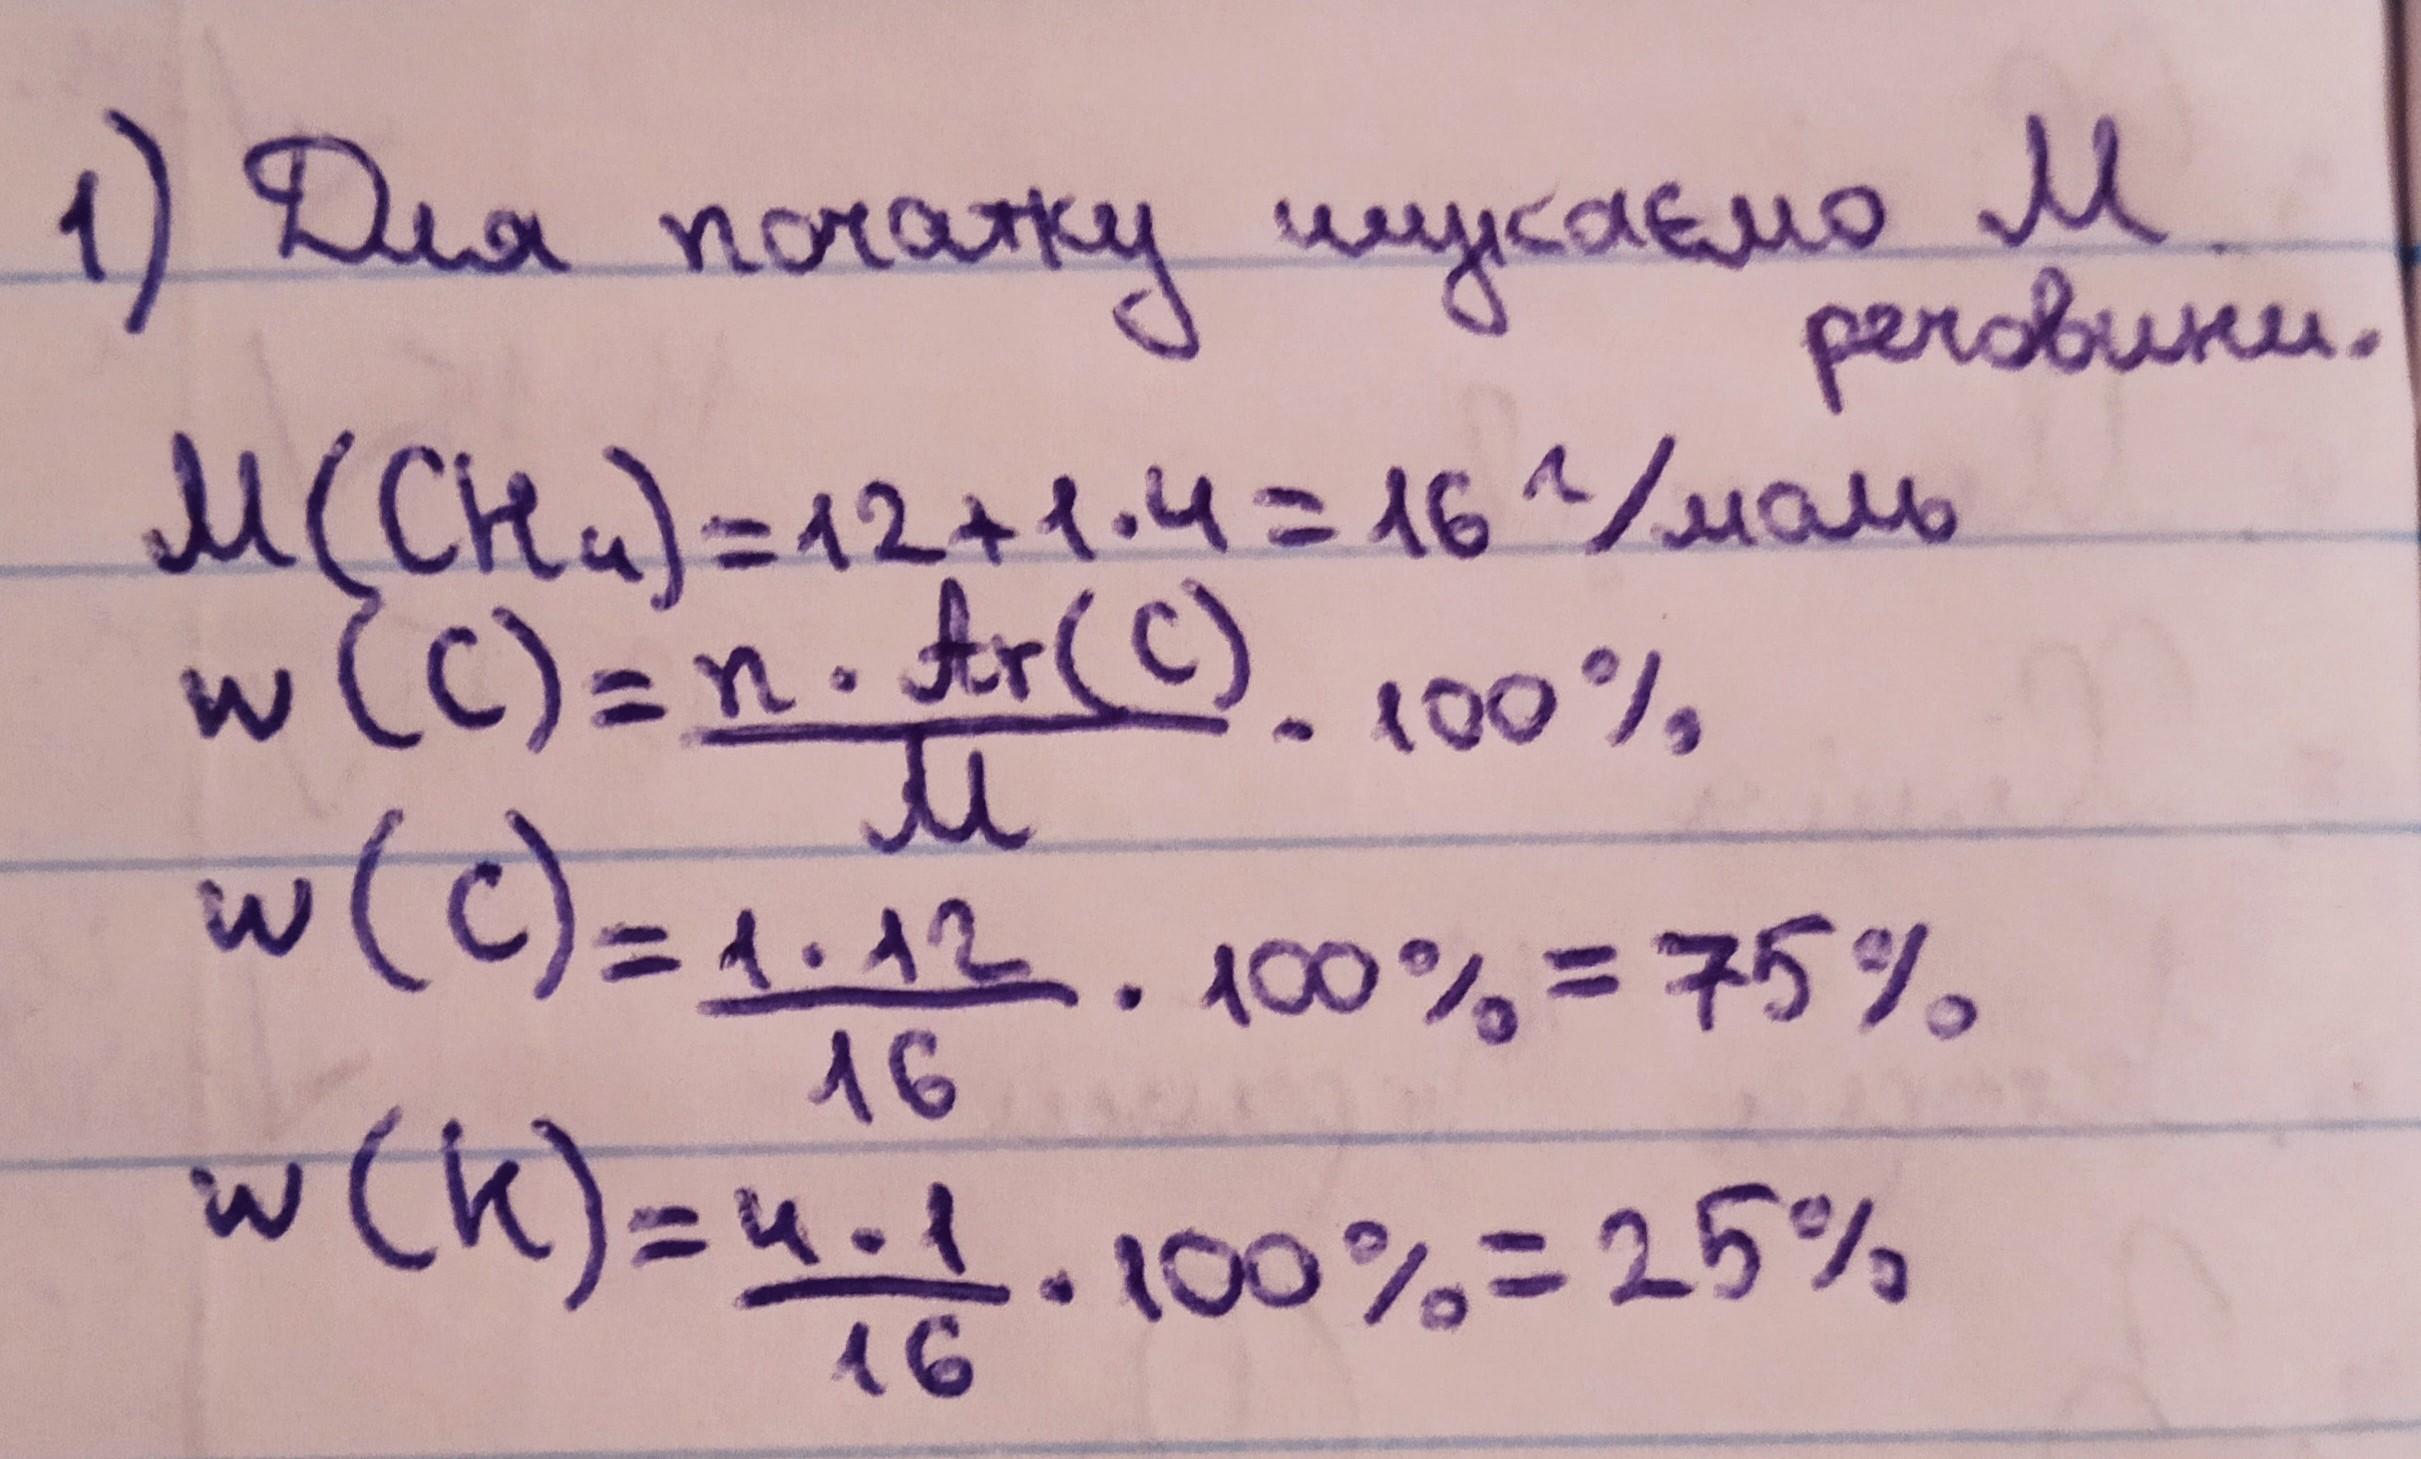 1) Для початку шукаємо M
речовини.
M(CH₄)=12+1·4=16 г/моль
w(C)=n·Ar(C)/M · 100%
w(C)=1·12/16 · 100%=75%
w(H)=4·1/16 · 100%=25%